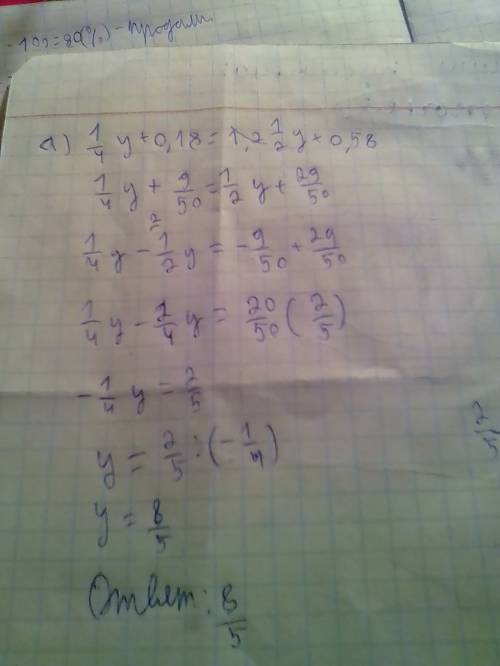 -100=80(%)-продали.
а) 1/4 y + 0,18 = 1,2 1/2 y + 0,58
1/4 y + 9/50 = 1/2 y + 29/50
1/4 y - 1/2 y = -9/50 + 29/50
2
1/4 y - 2/4 y = 20/50 (2/5)
-1/4 y = 2/5
y = 2/5 : (-1/4)
2/5
y = 8/5
Ответ: 8/5